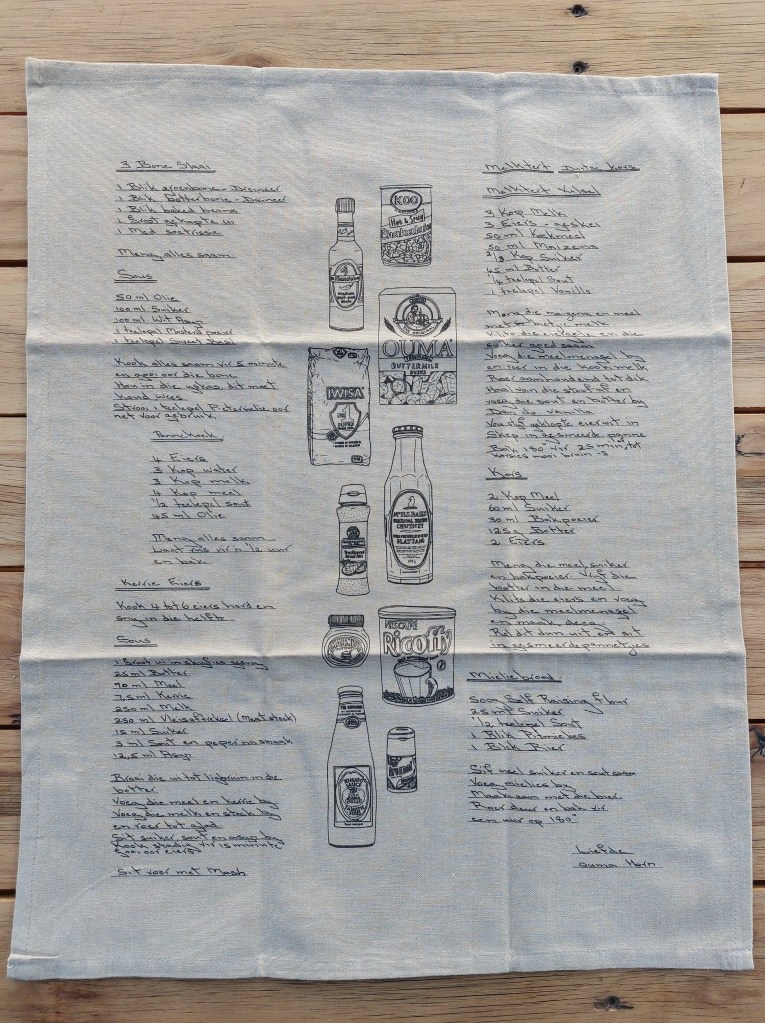 3 Bone Slaai
1 Blik groenbone - Dreineer
1 Blik botterbone - Dreineer
1 Blik baked beans
1 Groot gekapte ui
1 Med soetrissie
Meng alles saam
Sous
50 ml Olie
100 ml Suiker
100 ml Wit Asyn
1 teelepel Mosterd poeier
1 teelepel Sweet Basil
Kook alles saam vir 5 minute
en gooi oor die bone
Hou in die yskas, dit moet
koud wees
Strooi 1 teelepel Pietersielie oor
net voor gebruik
Pannekoek
4 Eiers
3 Kop water
3 Kop melk
4 Kop meel
1/2 teelepel sout
45 ml Olie
Meng alles saam
Laat rus vir 'n 1/2 uur
en bak
Kerrie Eiers
Kook 4 tot 6 eiers hard en
sny in die helfte
Sous
1 Groot ui in skyfies gesny
25 ml Botter
70 ml Meel
7,5 ml Kerrie
250 ml Melk
250 ml Vleisaftreksel (Meat stock)
15 ml Suiker
3 ml Sout en peper na smaak
12,5 ml Asyn
Braai die ui tot ligbruin in die
botter
Voeg die meel en kerrie by
Voeg die melk en stock by
en roer tot glad
Sit suiker, sout en asyn by
Kook stadig vir 15 minute
Gooi oor eiers
Sit voor met Mash
KOO
Hot & Spicy
Chakalaka
OUMA
BUTTERMILK
RUSKS
IWISA
1
SUPER
MRS. H.S. BALL'S
ORIGINAL RECIPE
CHUTNEY
BLATJANG
NESCAFE
Ricoffy
TOMATO
SAUCE
Melktert Duitse Kors
Melktert Vulsel
3 Kop Melk
3 Eiers - geskei
50 ml Koekmeel
50 ml Maizena
2/3 Kop Suiker
45 ml Botter
1/4 teelepel Sout
1 teelepel Vanilla
Meng die maizena en meel
met 'n bietjie melk
Klits die eiergele en die
suiker goed saam
Voeg die meelmengsel by
en roer in die kookmelk
Roer aanhoudend tot dik
Haal van die stoof af en
voeg die sout en botter by
Dan die vanilla
Vou styf geklopte eierwit in
Skep in gesmeerde panne
Bak 180° vir 25 min, tot
korsies mooi bruin is
Kors
2 Kop Meel
60 ml Suiker
30 ml Bakpoeier
125 g Botter
2 Eiers
Meng die meel, suiker
en bakpoeier. Vryf die
botter in die meel.
Klits die eiers en voeg
by die meelmengsel
en maak deeg.
Rol dit dun uit en sit
in gesmeerde pannetjies
Mieliebrood
500g Self Raising flour
25 ml Suiker
1/2 teelepel Sout
1 Blik Pitmielies
1 Blik Bier
Sif meel suiker en sout saam
Voeg mielies by
Maak aan met die bier
Roer deur en bak vir
een uur op 180°
Liefde
Ouma Horn